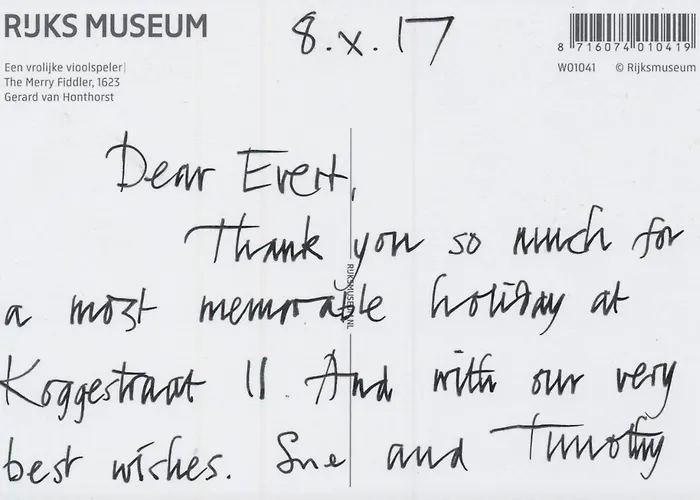 RIJKS MUSEUM
Een vrolijke vioolspeler
The Merry Fiddler, 1623
Gerard van Honthorst
8.x.17
8 716074 010419
W01041 © Rijksmuseum
Dear Evert,
Thank you so much for
a most memorable holiday at
Koggestraat 11. And with our very
best wishes. Sue and Timothy
RIJKSMUSEUM.NL